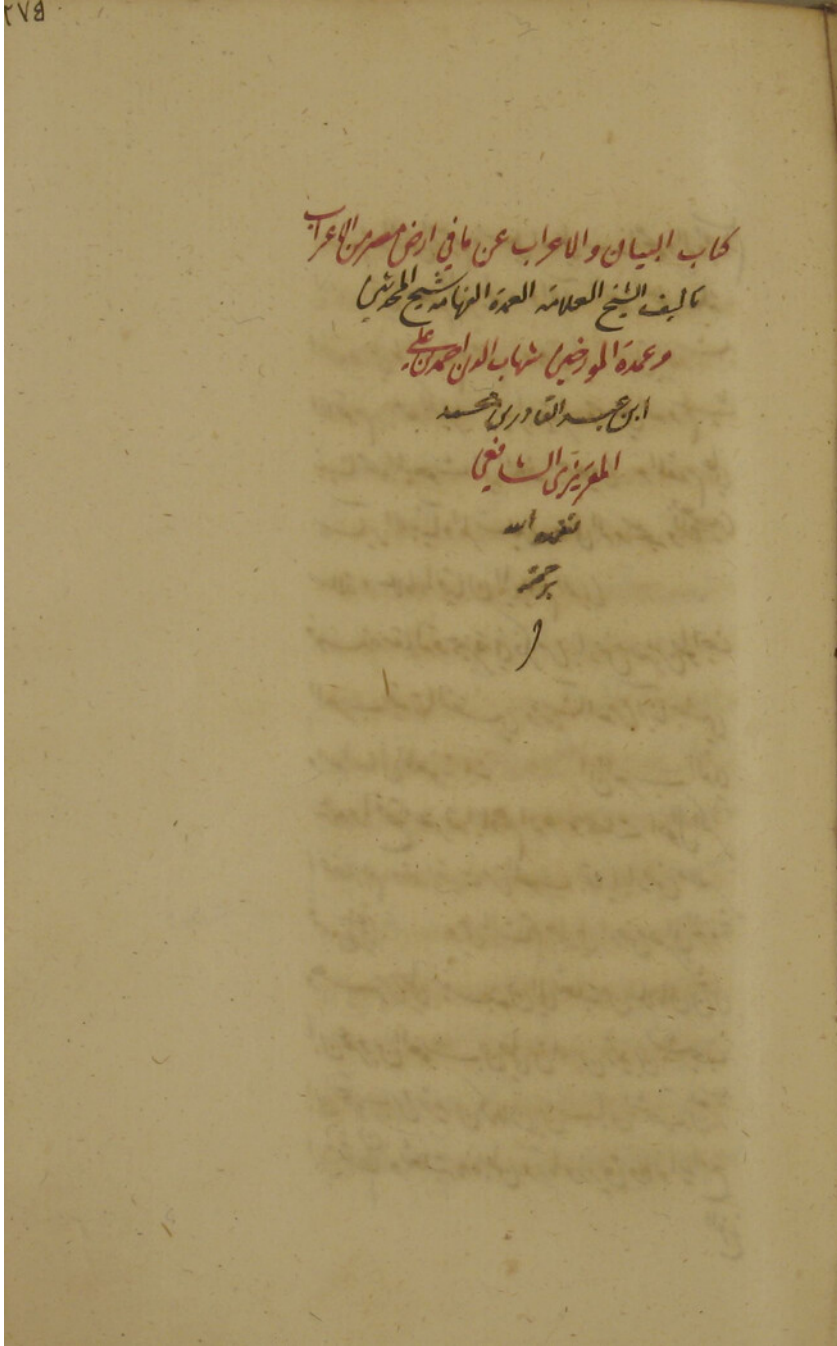 ٢٧٥
كتاب البيان والاعراب عن ما في ارض مصر من الاعراب
تاليف الشيخ العلامه العمدة الفهامه شيخ المحدثين
وعمدة المورخين شهاب الدين احمد بن علي
ابن عبد القادر بن محمد
المقريزي الشافعي
تغمده الله
برحمته